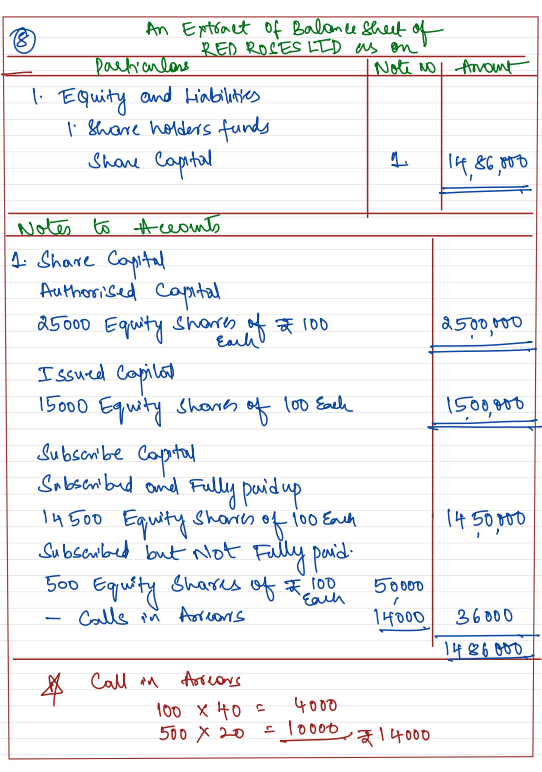 8
An Extract Of Balance Sheet of
RED ROSES LTD as on
Particulars Note No Amount
1. Equity and Liabilities
1. Share holders funds
Share Capital 1 14,86,000
Notes to Accounts
1. Share Capital
Authorised Capital
25000 Equity Shares of ₹ 100 Each 2500,000
Issued Capital
15000 Equity Shares of 100 Each 1500,000
Subscribe Capital
Subscribed and Fully paid up
14500 Equity Shares of 100 Each 1450,000
Subscribed but Not Fully paid.
500 Equity Shares of ₹ 100 Each 50,000
- Calls in Arrears 14000 36000
1486000
Call in Arrears
100 × 40 = 4000
500 × 20 = 10000 ₹14000